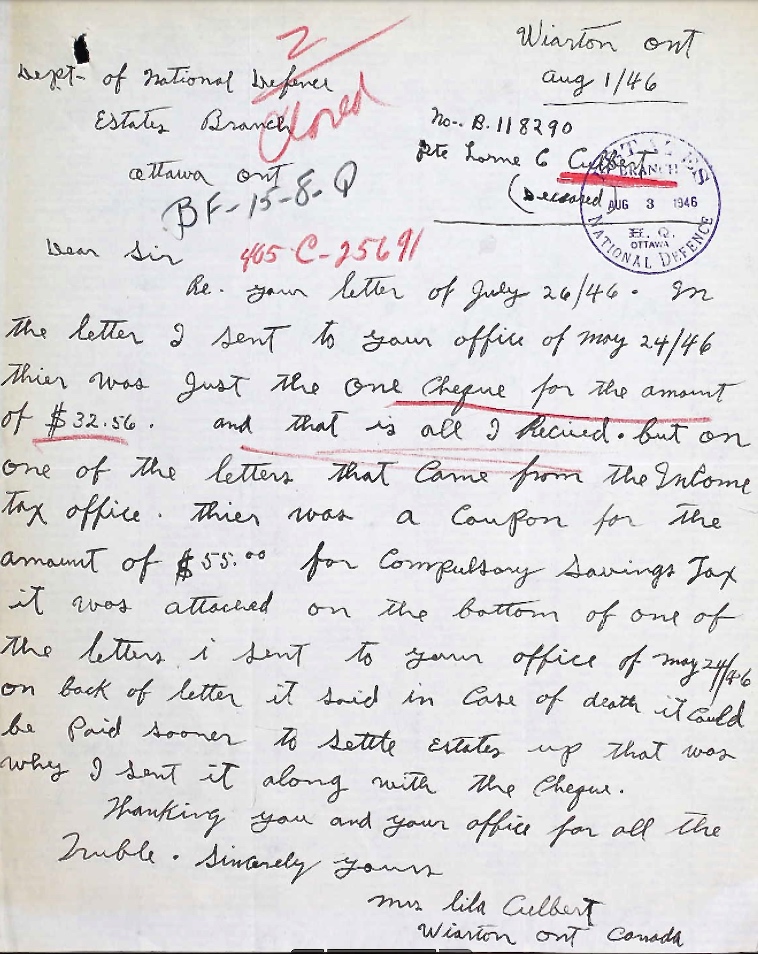 2
Wiarton ont
Aug 1/46
Dept- of National Defence
Closed
Estates Branch
No-. B. 118290
Pte Lorne C Culbert
(Deceased)
Ottawa ont
BF-15-8-Q
ESTATES
BRANCH
AUG 3 1946
H. Q.
OTTAWA
NATIONAL DEFENCE
Dear Sir
405 C-25691
Re. your letter of July 26/46. In
the letter I sent to your office of may 24/46
thier was Just the one Cheque for the amount
of $32.56. and that is all I Recived. but on
one of the letters that Came from the InCome
tax office. thier was a Coupon for the
amount of $55.00 for Compulsory Savings Tax
it was attached on the bottom of one of
the letters i sent to your office of may 24/46
on back of letter it said in Case of death it Could
be Paid sooner to settle Estates up that was
why I sent it along with the Cheque.
Thanking you and your office for all the
Truble. Sincerely yours
Mrs Lila Culbert
Wiarton ont Canada